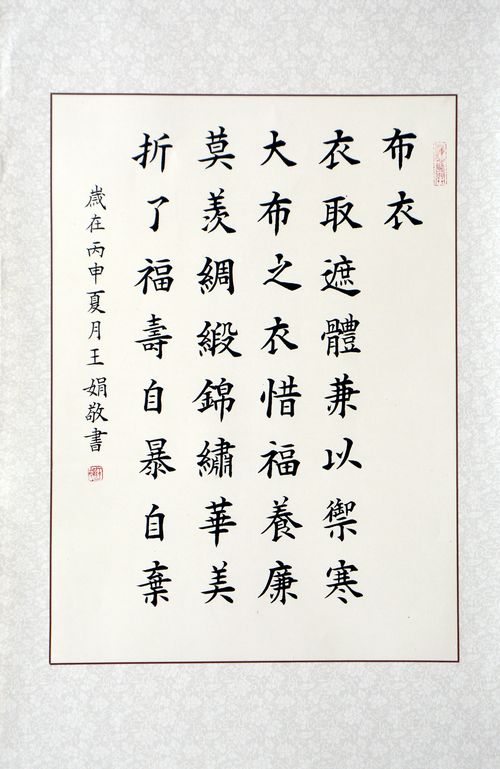 布衣
衣取遮體兼以禦寒
大布之衣惜福養廉
莫羨綢緞錦繡華美
折了福壽自暴自棄
歲在丙申夏月王娟敬書